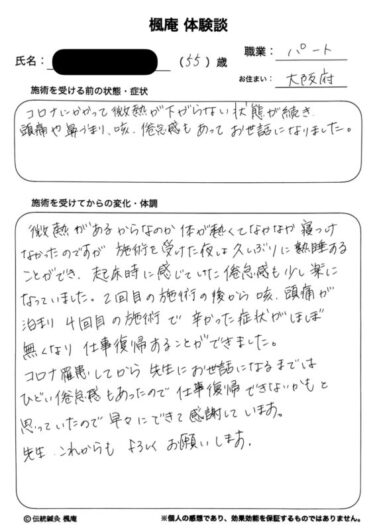 楓庵 体験談
氏名： (55)歳 職業： パート
お住まい： 大阪府
施術を受ける前の状態・症状
コロナにかかって微熱が下がらない状態が続き
頭痛や鼻づまり、咳、倦怠感もあってお世話になりました。
施術を受けてからの変化・体調
微熱があるからなのか体が熱くてなかなか寝つけ
なかったのですが施術を受けた夜は久しぶりに熟睡する
ことができ、起床時に感じていた倦怠感も少し楽に
なっていました。2回目の施術の後から咳、頭痛が
治まり4回目の施術で辛かった症状がほぼ
無くなり仕事復帰することができました。
コロナ罹患してから先生にお世話になるまでは
ひどい倦怠感もあったので仕事復帰できないかもと
思っていたので早々にできて感謝しています。
先生、これからもよろしくお願いします。
©伝統鍼灸 楓庵
※個人の感想であり、効果効能を保証するものではありません。